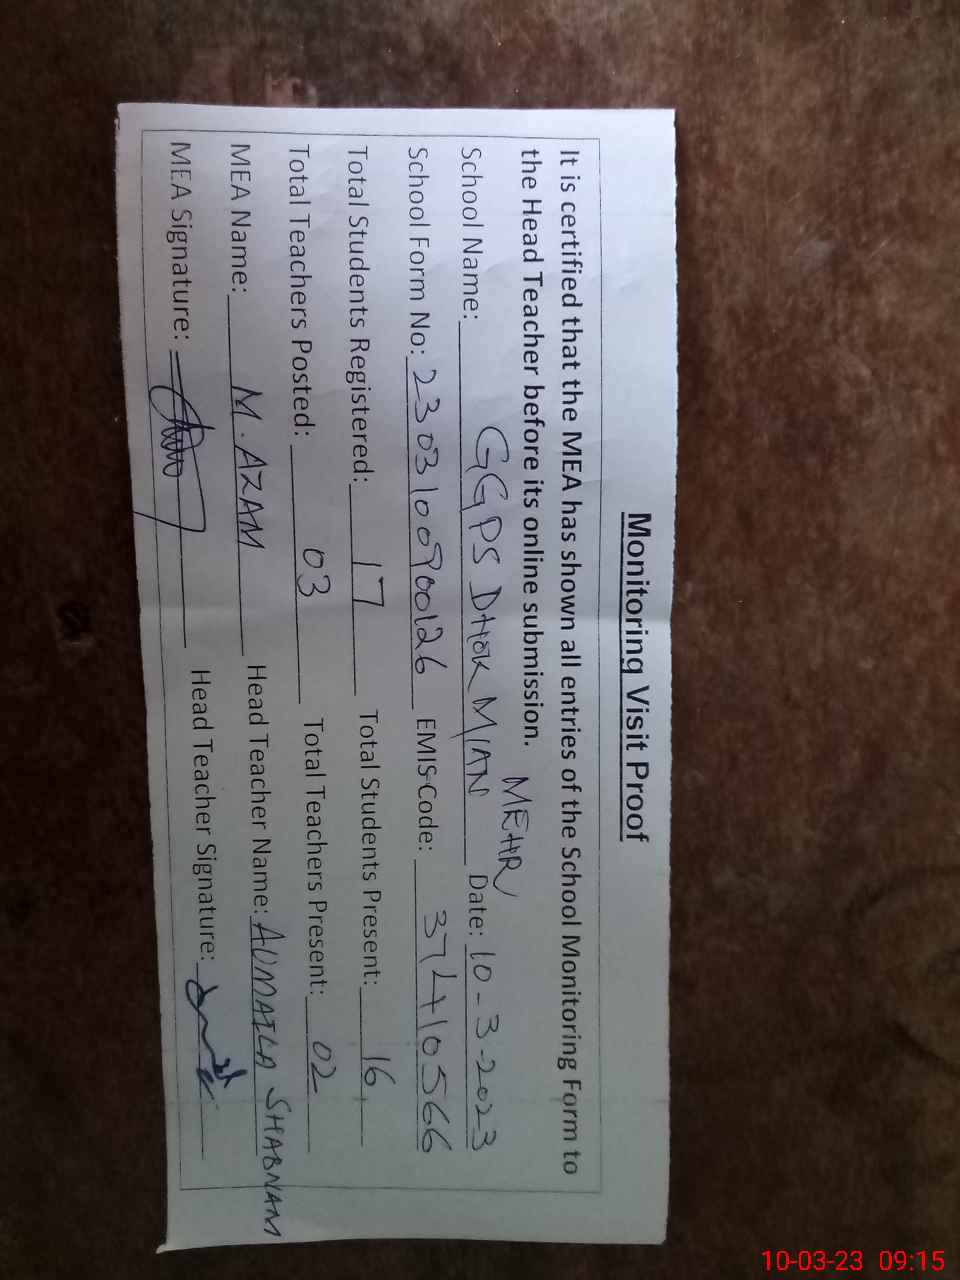 Monitoring Visit Proof
It is certified that the MEA has shown all entries of the School Monitoring Form to
the Head Teacher before its online submission.
MEHR
School Name: GGPS DHOK MIAN Date: 10-3-2023
School Form No: 2303100900126 EMIS Code: 37410566
Total Students Registered: 17 Total Students Present: 16
Total Teachers Posted: 03 Total Teachers Present: 02
MEA Name: M. AZAM Head Teacher Name: AUMAILA SHABNAM
MEA Signature: Head Teacher Signature:
10-03-23 09:15